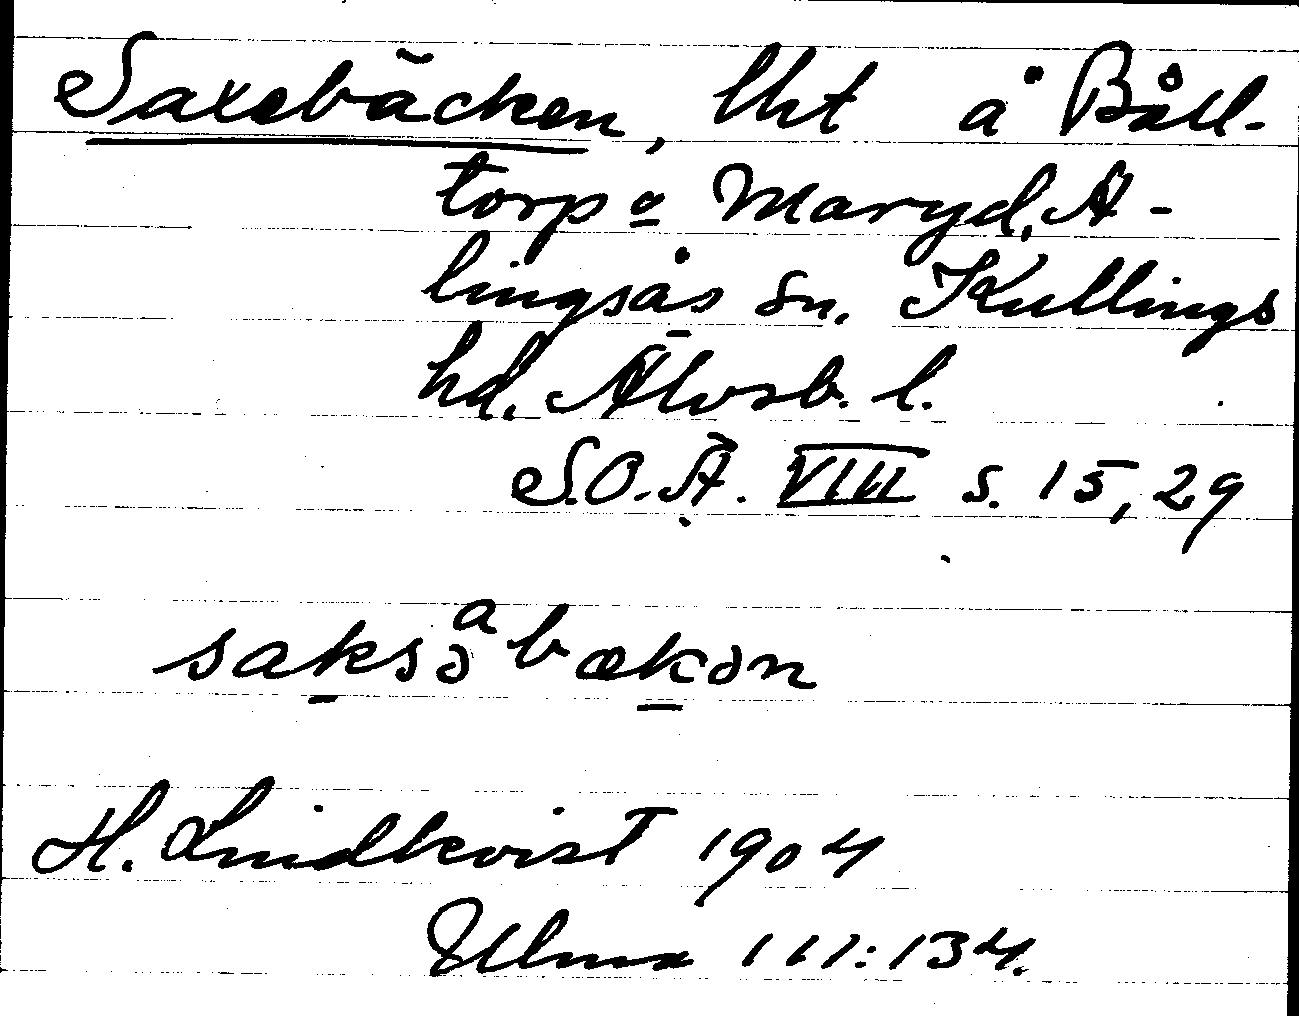 Saxebäcken, lht å Båll-
torp o Maryd, A-
lingsås sn. Kullings
hd. Älvsb. l.
S.O.Ä. VIII s. 15, 29
saksəᵃbækən
H. Lindkvist 1904
Ulma 111:134.